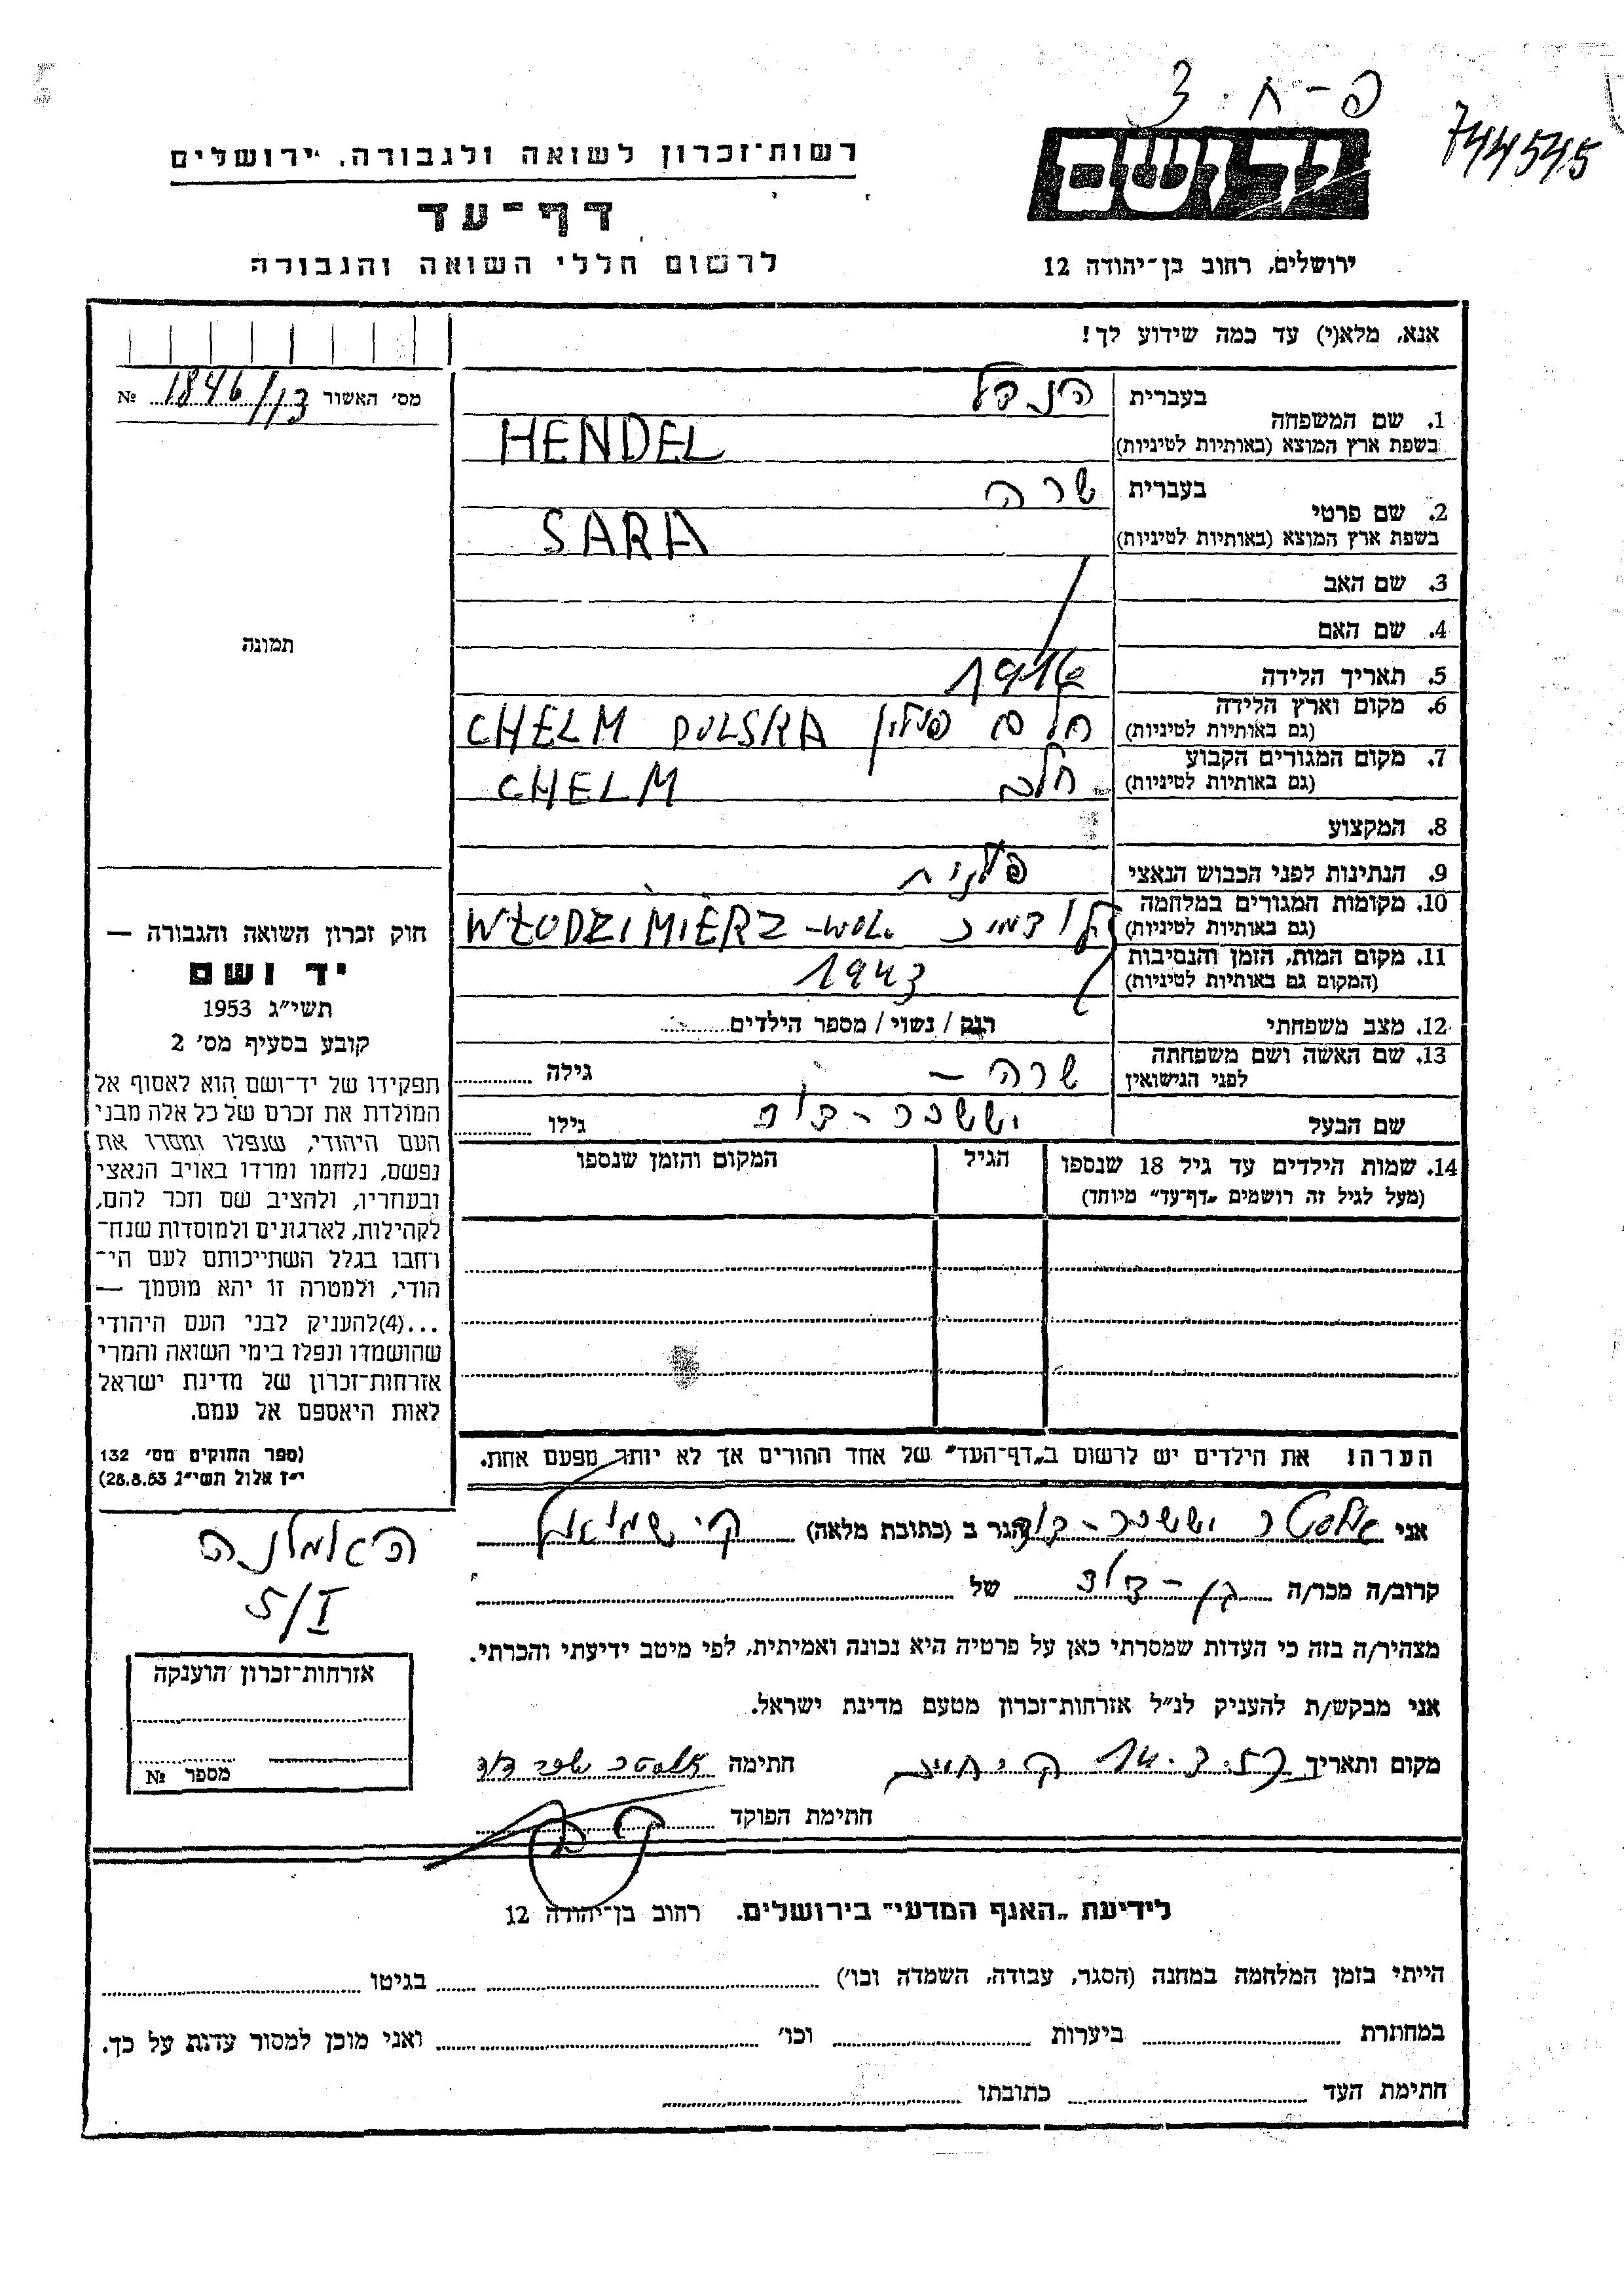 פ-ח.3
744545
יד ושם
רשות־זכרון לשואה ולגבורה, ירושלים
דף־עד
לרשום חללי השואה והגבורה
ירושלים, רחוב בן־יהודה 12
אנא, מלא(י) עד כמה שידוע לך!
מס' האשור 1846/13 №
1. שם המשפחה
בעברית הינדל
בשפת ארץ המוצא (באותיות לטיניות) HENDEL
2. שם פרטי
בעברית שרה
בשפת ארץ המוצא (באותיות לטיניות) SARA
3. שם האב
4. שם האם
5. תאריך הלידה 1916
6. מקום וארץ הלידה
(גם באותיות לטיניות) חלם פולין CHELM POLSKA
7. מקום המגורים הקבוע
(גם באותיות לטיניות) חלם CHELM
8. המקצוע
9. הנתינות לפני הכבוש הנאצי פולנית
10. מקומות המגורים במלחמה
(גם באותיות לטיניות) WŁODZIMIERZ-WOŁ.
11. מקום המות, הזמן והנסיבות
(המקום גם באותיות לטיניות) 1943
12. מצב משפחתי רווק / נשוי / מספר הילדים
13. שם האשה ושם משפחתה
לפני הנישואין שרה – גילה
שם הבעל יששכר-דוד גילו
14. שמות הילדים עד גיל 18 שנספו
(מעל לגיל זה רושמים „דף־עד” מיוחד)
הגיל
המקום והזמן שנספו
הערה! את הילדים יש לרשום ב„דף־העד” של אחד ההורים אך לא יותר מפעם אחת.
תמונה
חוק זכרון השואה והגבורה —
יד ושם
תשי״ג 1953
קובע בסעיף מס' 2
תפקידו של יד־ושם הוא לאסוף אל
המולדת את זכרם של כל אלה מבני
העם היהודי, שנפלו ומסרו את
נפשם, נלחמו ומרדו באויב הנאצי
ובעוזריו, ולהציב שם וזכר להם,
לקהילות, לארגונים ולמוסדות שנח־
רחבו בגלל השתייכותם לעם הי־
הודי, ולמטרה זו יהא מוסמך —
...(4)להעניק לבני העם היהודי
שהושמדו ונפלו בימי השואה והמרי
אזרחות־זכרון של מדינת ישראל
לאות היאספם אל עמם.
(ספר החוקים מס' 132
י״ז אלול תשי״ג 28.8.53)
5/I
אזרחות־זכרון הוענקה
מספר №
אני אלסטר יששכר-דוד הגר ב (כתובת מלאה) ק. שמואל
קרוב/ה מכר/ה בן-דוד של
מצהיר/ה בזה כי העדות שמסרתי כאן על פרטיה היא נכונה ואמיתית, לפי מיטב ידיעתי והכרתי.
אני מבקש/ת להעניק לנ״ל אזרחות־זכרון מטעם מדינת ישראל.
מקום ותאריך 14.3.57 חתימה
חתימת הפוקד
לידיעת „האגף המדעי” בירושלים, רחוב בן־יהודה 12
הייתי בזמן המלחמה במחנה (הסגר, עבודה, השמדה וכו') בגיטו
במחתרת ביערות וכו' ואני מוכן למסור עדות על כך.
חתימת העד כתובתו